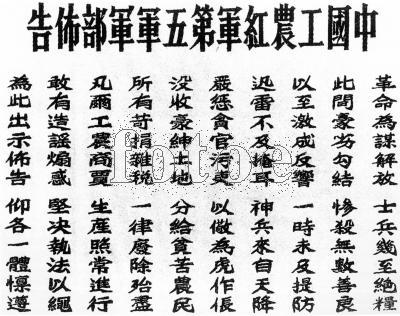 中國工農紅軍第五軍軍部佈告
革命為謀解放 士兵幾至絕糧
此間豪劣勾結 慘殺無數善良
以至激成反響 一時未及提防
迅雷不及掩耳 神兵來自天降
嚴懲貪官污吏 以儆為虎作倀
沒收豪紳土地 分給貧苦農民
所有苛捐雜稅 一律廢除殆盡
凡爾工農商賈 生產照常進行
敢有造謠煽惑 堅决執法以繩
為此出示佈告 仰各一體懍遵
fotoe